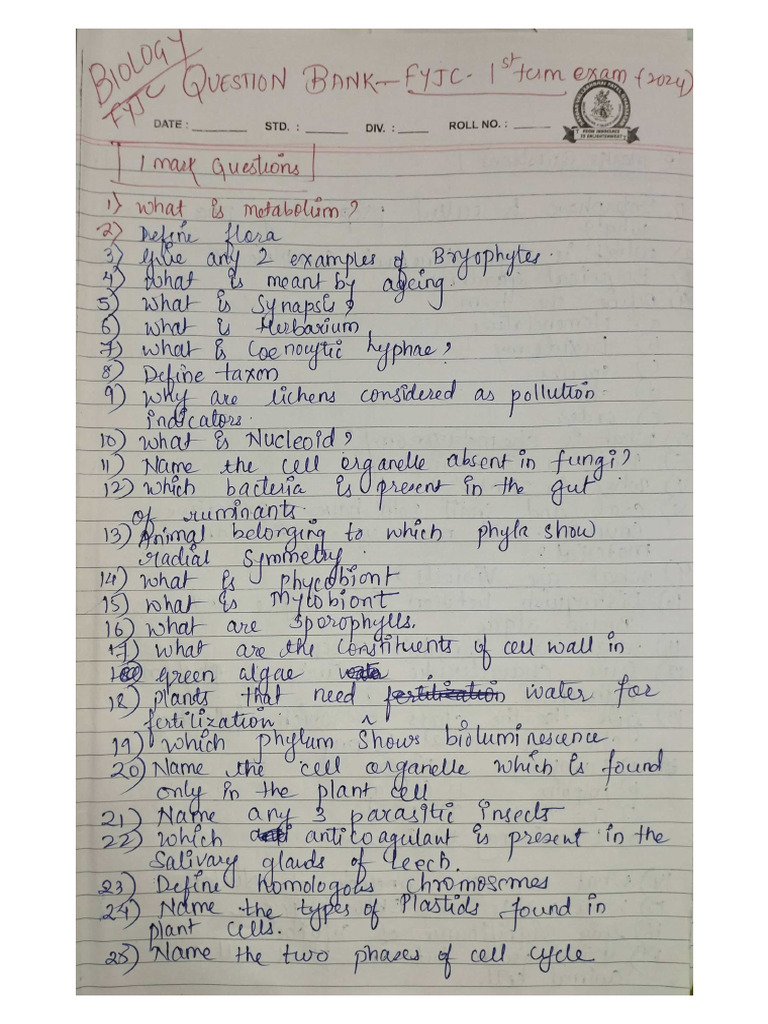 BIOLOGY
FYJC QUESTION BANK - FYJC - 1st term exam (2024)
DATE : ________ STD. : ________ DIV. : _____ ROLL NO. : ______
FROM INNOCENCE
TO ENLIGHTENMENT
1 mark Questions
1) What is metabolism?
2) Define flora
3) Give any 2 examples of Bryophytes.
4) What is meant by ageing.
5) What is Synapsis?
6) What is Herbarium
7) What is Coenocytic hyphae?
8) Define taxon
9) Why are lichens considered as pollution
indicators.
10) What is Nucleoid?
11) Name the cell organelle absent in fungi?
12) Which bacteria is present in the gut
of ruminants.
13) Animal belonging to which phyla show
radial symmetry.
14) What is phycobiont
15) What is Mycobiont
16) What are sporophylls.
17) What are the constituents of cell wall in
green algae
18) plants that need water for
fertilization
19) Which phylum shows bioluminescence
20) Name the cell organelle which is found
only in the plant cell
21) Name any 3 parasitic insects
22) Which anticoagulant is present in the
Salivary glands of Leech.
23) Define Homologous chromosomes
24) Name the types of Plastids found in
plant cells.
25) Name the two phases of cell cycle